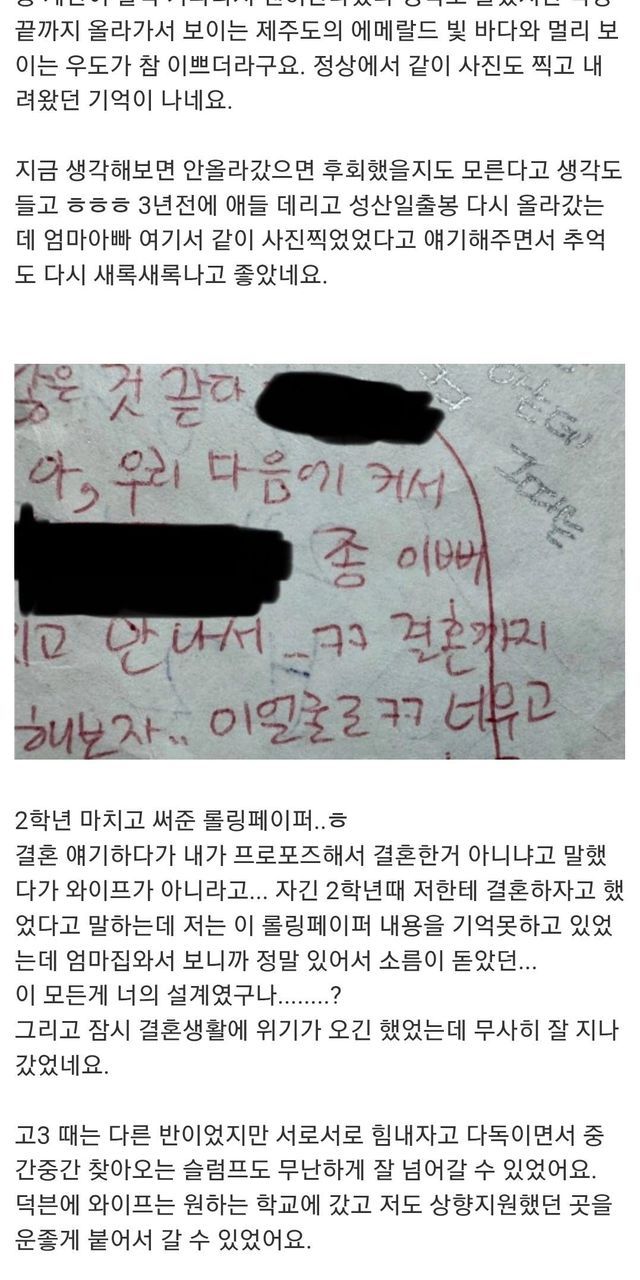 끝까지 올라가서 보이는 제주도의 에메랄드 빛 바다와 멀리 보
이는 우도가 참 이쁘더라구요. 정상에서 같이 사진도 찍고 내
려왔던 기억이 나네요.
지금 생각해보면 안올라갔으면 후회했을지도 모른다고 생각도
들고 ㅎㅎㅎ 3년전에 애들 데리고 성산일출봉 다시 올라갔는
데 엄마아빠 여기서 같이 사진찍었었다고 얘기해주면서 추억
도 다시 새록새록나고 좋았네요.
것 끝다
아, 우리 다음에 커서
좀 이뻐
고 만나서 _ㅋㅋ 결혼까지
해보자.. 이얼굴로ㅋㅋ 너우고
2학년 마치고 써준 롤링페이퍼..ㅎ
결혼 얘기하다가 내가 프로포즈해서 결혼한거 아니냐고 말했
다가 와이프가 아니라고... 자긴 2학년때 저한테 결혼하자고 했
었다고 말하는데 저는 이 롤링페이퍼 내용을 기억못하고 있었
는데 엄마집와서 보니까 정말 있어서 소름이 돋았던...
이 모든게 너의 설계였구나........?
그리고 잠시 결혼생활에 위기가 오긴 했었는데 무사히 잘 지나
갔었네요.
고3 때는 다른 반이었지만 서로서로 힘내자고 다독이면서 중
간중간 찾아오는 슬럼프도 무난하게 잘 넘어갈 수 있었어요.
덕븐에 와이프는 원하는 학교에 갔고 저도 상향지원했던 곳을
운좋게 붙어서 갈 수 있었어요.